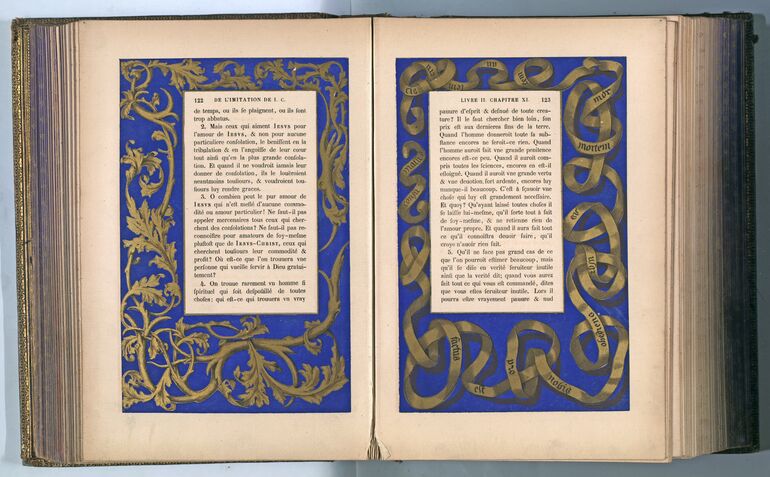 122 DE L'IMITATION DE I. C.
de temps, ou ils se plaignent, ou ils sont
trop abbatus.
2. Mais ceux qui aiment IESVS pour
l'amour de IESVS, & non pour aucune
particuliere consolation, le benissent en la
tribalation & en l'angoisse de leur cœur
tout ainsi qu'en la plus grande consola-
tion. Et quand il ne voudroit iamais leur
donner de consolation, ils le loüeroient
neantmoins tousiours, & voudroient tou-
siours luy rendre graces.
3. O combien peut le pur amour de
IESVS qui n'est meslé d'aucune commo-
dité ou amour particulier! Ne faut-il pas
appeler mercenaires tous ceux qui cher-
chent des consolations? Ne faut-il pas re-
connoistre pour amateurs de soy-mesme
plustost que de IESVS-CHRIST, ceux qui
cherchent tousiours leur commodité &
profit? Où est-ce que l'on trouuera vne
personne qui vueille servir à Dieu gratui-
tement?
4. On trouue rarement vn homme si
spirituel qui soit despoüillé de toutes
choses; qui est-ce qui trouuera vn vray
LIVRE II. CHAPITRE XI. 123
pauure d'esprit & desnué de toute crea-
ture? Il le faut chercher bien loin, son
prix est aux dernieres fins de la terre.
Quand l'homme donneroit toute sa sub-
stance encores ne seroit-ce rien. Quand
l'homme auroit fait vne grande penitence
encores est-ce peu. Quand il auroit com-
pris toutes les sciences, encores en est-il
esloigné. Quand il auroit vne grande vertu
& vne deuotion fort ardente, encores luy
manque-il beaucoup. C'est à sçauoir vne
chose qui luy est grandement necessaire.
Et quoy? Qu'ayant laissé toutes choses il
se laisse lui-mesme, qu'il sorte tout à fait
de soy-mesme, & ne retienne rien de
l'amour propre. Et quand il aura fait tout
ce qu'il connoistra deuoir faire, qu'il
croye n'auoir rien fait.
5. Qu'il ne face pas grand cas de ce
que l'on pourroit estimer beaucoup, mais
qu'il se dise en verité seruiteur inutile
ainsi que la verité dit; quand vous aurez
fait tout ce qui vous est commandé, dites
que vous estes seruiteur inutile. Lors il
pourra estre vrayement pauure & nud
mor
mortem
obediens
nobis
pro
est
factus